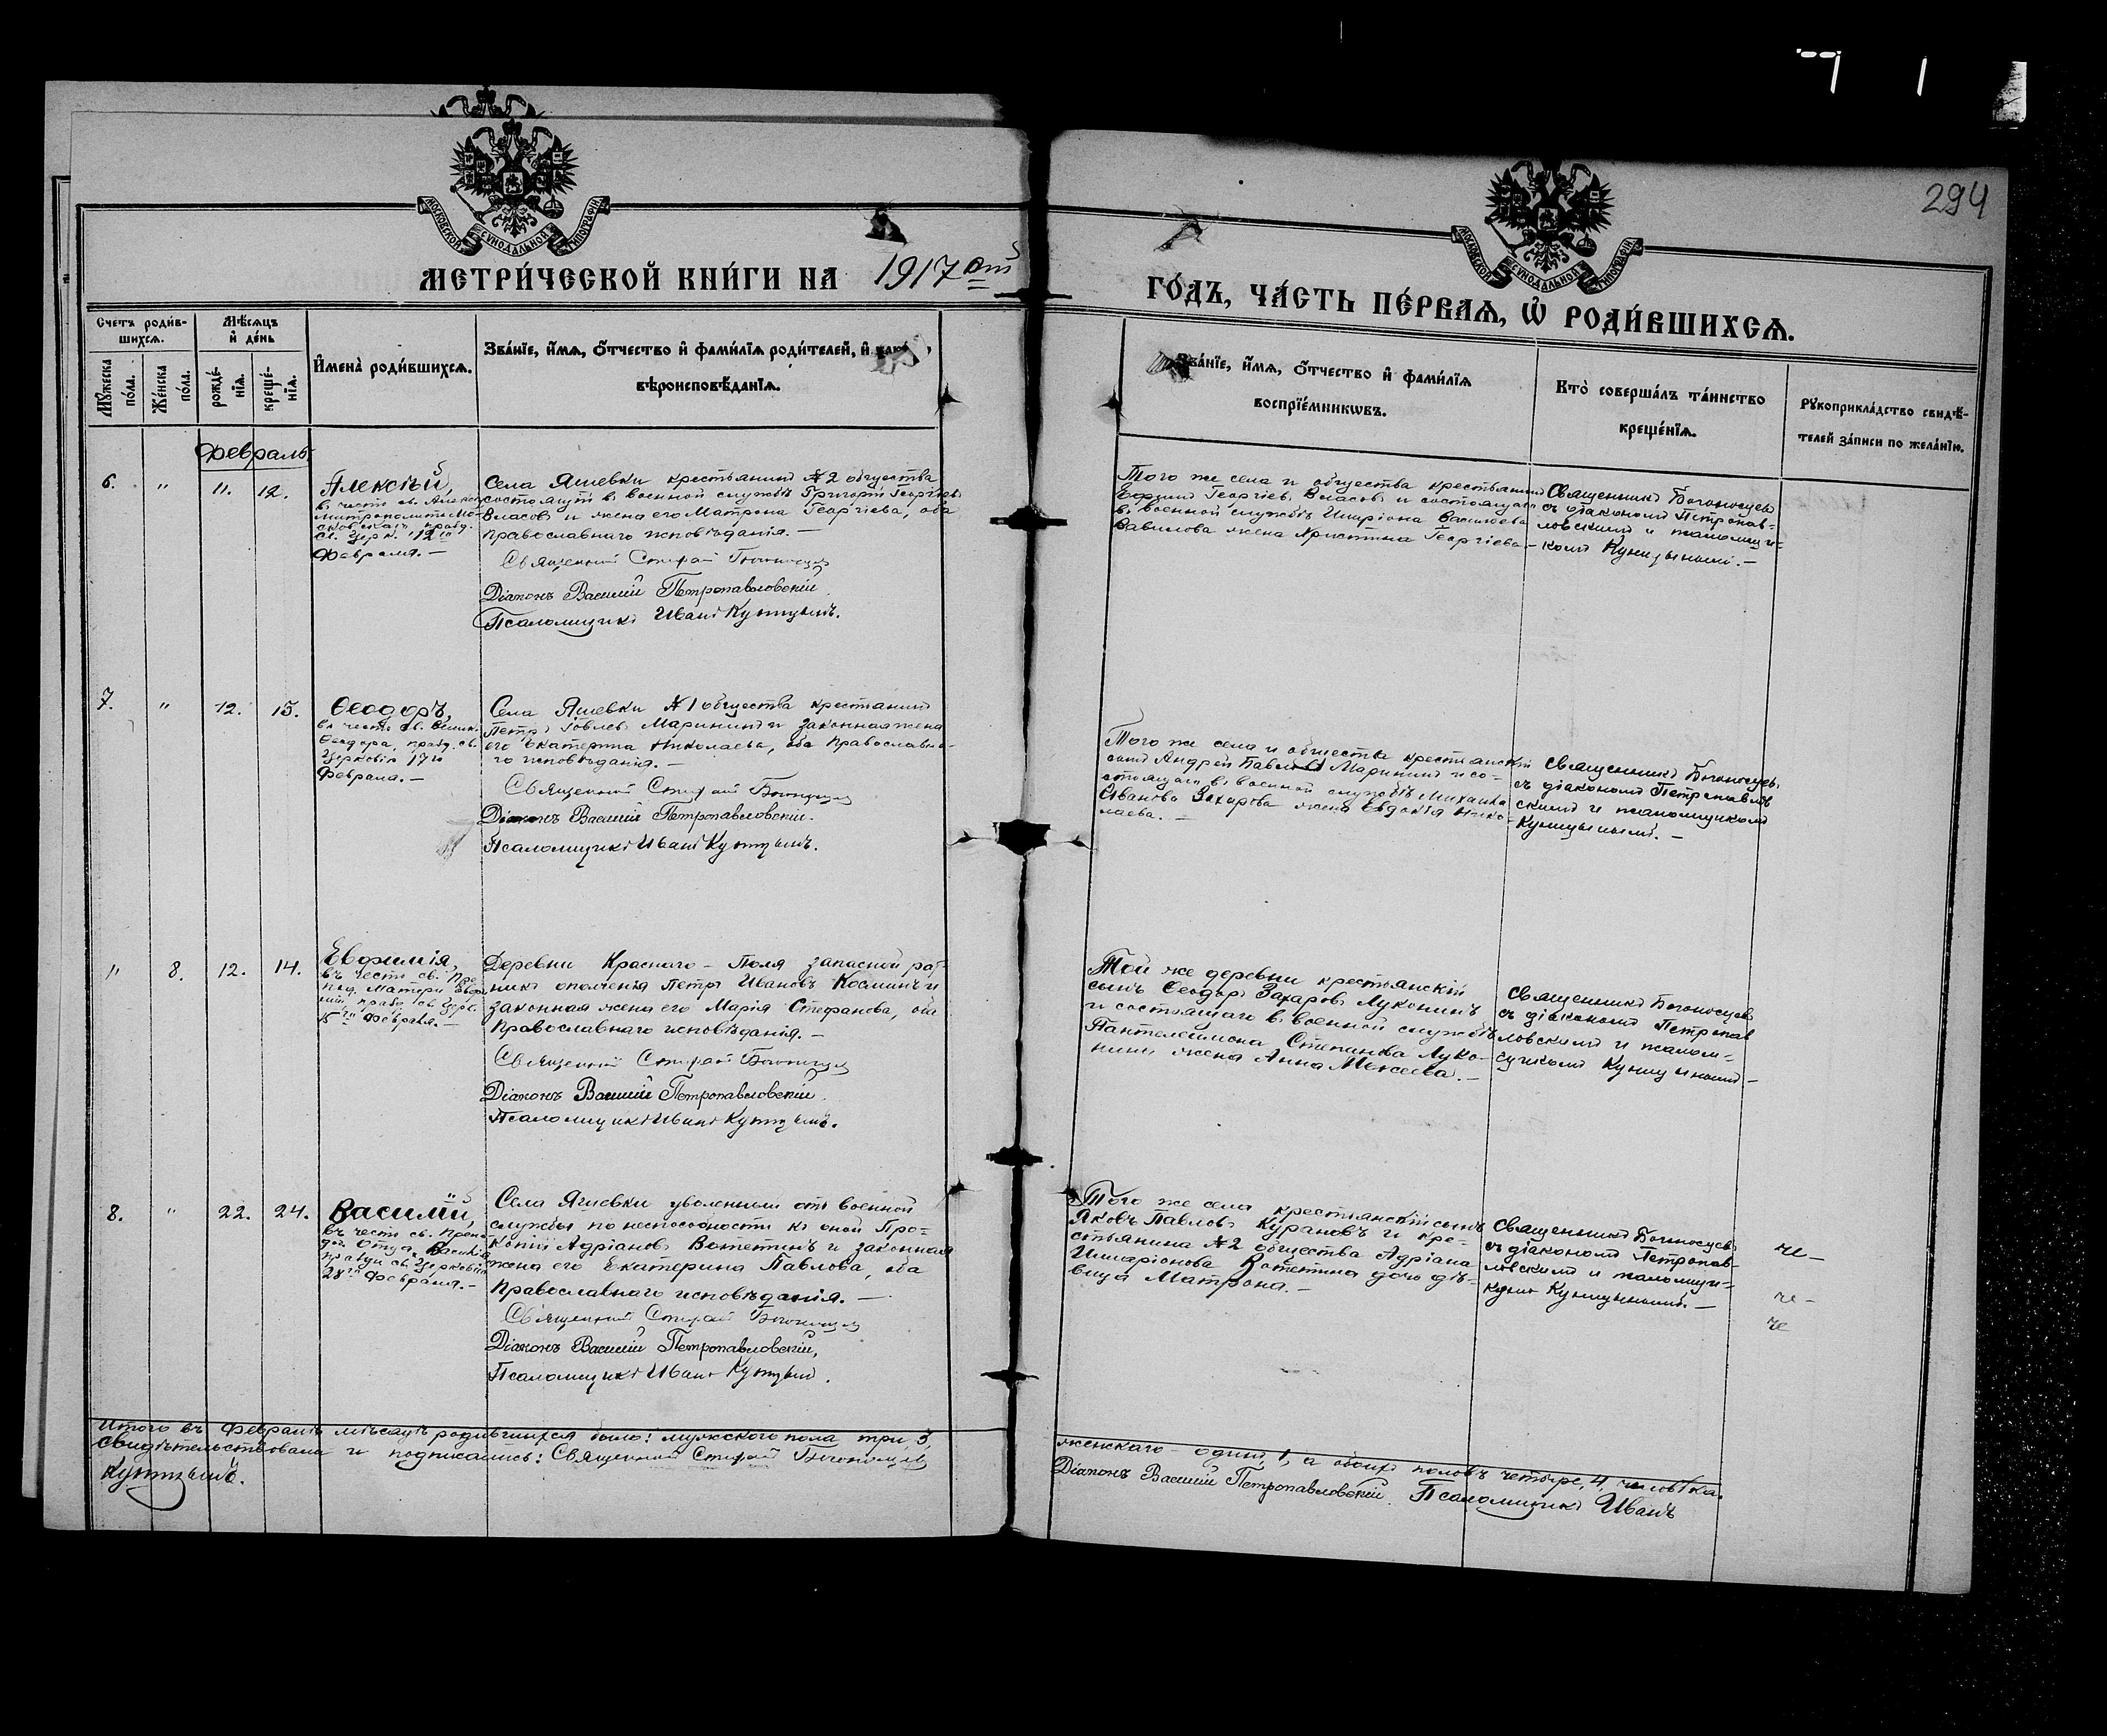 294
МОСКОВСКОЙ СУНОДАЛЬНОЙ ТИПОГРАФІИ
МОСКОВСКОЙ СУНОДАЛЬНОЙ ТИПОГРАФІИ
МЕТРИ́ЧЕСКОЙ КНИ́ГИ НА 1917 ый
ГО́ДЪ, ЧА́СТЬ ПЕ́РВАѦ, Ѡ҆ РОДИ́ВШИХСѦ.
Счетъ роди́в-
шихсѧ.
Мѣ́сѧцъ
и҆ де́нь
Мꙋ́жеска
по́ла.
Же́нска
по́ла.
рожде́-
нїѧ.
креще́-
нїѧ.
И҆мена̀ роди́вшихсѧ.
Зва́нїе, и҆́мѧ, ѻ҆́тчество и҆ фами́лїѧ роди́телей, и҆
вѣроисповѣ́данїѧ.
Зва́нїе, и҆́мѧ, ѻ҆́тчество и҆ фами́лїѧ
воспрїе́мникѡвъ.
Кто̀ соверша́лъ та́инство
креще́нїѧ.
Рꙋкоприкла́дство свидѣ́-
телей за́писи по жела́нїю.
Февраль.
6.
"
11.
12.
Алексѣй,
въ честь св. Алексѣя
митрополита Мо-
сковскаго, празд.
св. Церк. 12 го
Февраля. —
Села Яшевки крестьянинъ №2 общества
состоящій въ военной службѣ Григорій Георгіевъ
Власовъ и жена его Матрона Георгіева, оба
православнаго исповѣданія. —
Священникъ Спиридон Богоносцев
Діаконъ Василій Петропавловскій.
Псаломщикъ Иванъ Купцынъ.
Того же села и общества крестьянинъ
Георгіевъ Власовъ и состоящаго
въ военной службѣ Василіева
Вавилова жена Христина Георгіева. —
Священникъ Богоносцевъ
съ діакономъ Петропав-
ловскимъ и псаломщи-
комъ Купцынымъ. —
7.
"
12.
15.
Ѳеодоръ,
въ честь св. Велик.
Ѳеодора, празд. св.
Церковію 17 го
Февраля. —
Села Яшевки №1 общества крестьянинъ
Петръ Маринин и законная жена
его Екатерина Николаева, оба православна-
го исповѣданія. —
Священникъ Спиридон Богоносцев
Діаконъ Василій Петропавловскій.
Псаломщикъ Иванъ Купцынъ.
Того же села и общества крестьянскій
сынъ Андрей Павловъ Маринин и со-
стоящаго въ военной службѣ Михаила
Иванова Захарова жена Евдокія Нико-
лаева. —
Священникъ Богоносцевъ
съ діакономъ Петропавлов
скимъ и псаломщикомъ
Купцынымъ. —
"
8.
12.
14.
Евфимія,
въ честь св. Пре
под. Матери Евфи
міи, празд. св. Церк.
15 го Февраля. —
Деревни Краснаго - Поля запасной рат
никъ ополченія Петръ Ивановъ Косминъ и
законная жена его Марія Стефанова, оба
православнаго исповѣданія. —
Священникъ Спиридон Богоносцев
Діаконъ Василій Петропавловскій.
Псаломщикъ Иванъ Купцынъ.
Той же деревни крестьянскій
сынъ Ѳеодоръ Захаровъ Луконинъ
и состоящаго въ военной службѣ
Пантелеимона Степанова Луко-
нина жена Анна Моисеева. —
Священникъ Богоносцевъ
съ діакономъ Петропав
ловскимъ и псалом-
щикомъ Купцынымъ —
8.
"
22.
24.
Василій,
въ честь св. Препо
доб. Отца Василія
празд. св. Церковію
28 го Февраля. —
Села Яшевки уволенный отъ военной
службы по неспособности къ оной Про-
копій Адріановъ Вотетинъ и законная
жена его Екатерина Павлова, оба
православнаго исповѣданія. —
Священникъ Спиридон Богоносцев
Діаконъ Василій Петропавловскій,
Псаломщикъ Иванъ Купцынъ.
Того же села крестьянскій сынъ
Яковъ Павловъ Курановъ и кре-
стьянина №2 общества Адріана
Вотетина дочь дѣ-
вица Матрона. —
Священникъ Богоносцевъ
съ діакономъ Петропав-
ловскимъ и псаломщи-
комъ Купцынымъ. —
че —
че -
че
Итого въ Февралѣ мѣсяцѣ родившихся было: мужского пола три, 3,
женскаго - одинъ, 1, а обоихъ половъ четыре, 4, человѣка.
Свидѣтельствовали и подписались: Священникъ Спиридон Богоносцев
Діаконъ Василій Петропавловскій. Псаломщикъ Иванъ
Купцынъ.